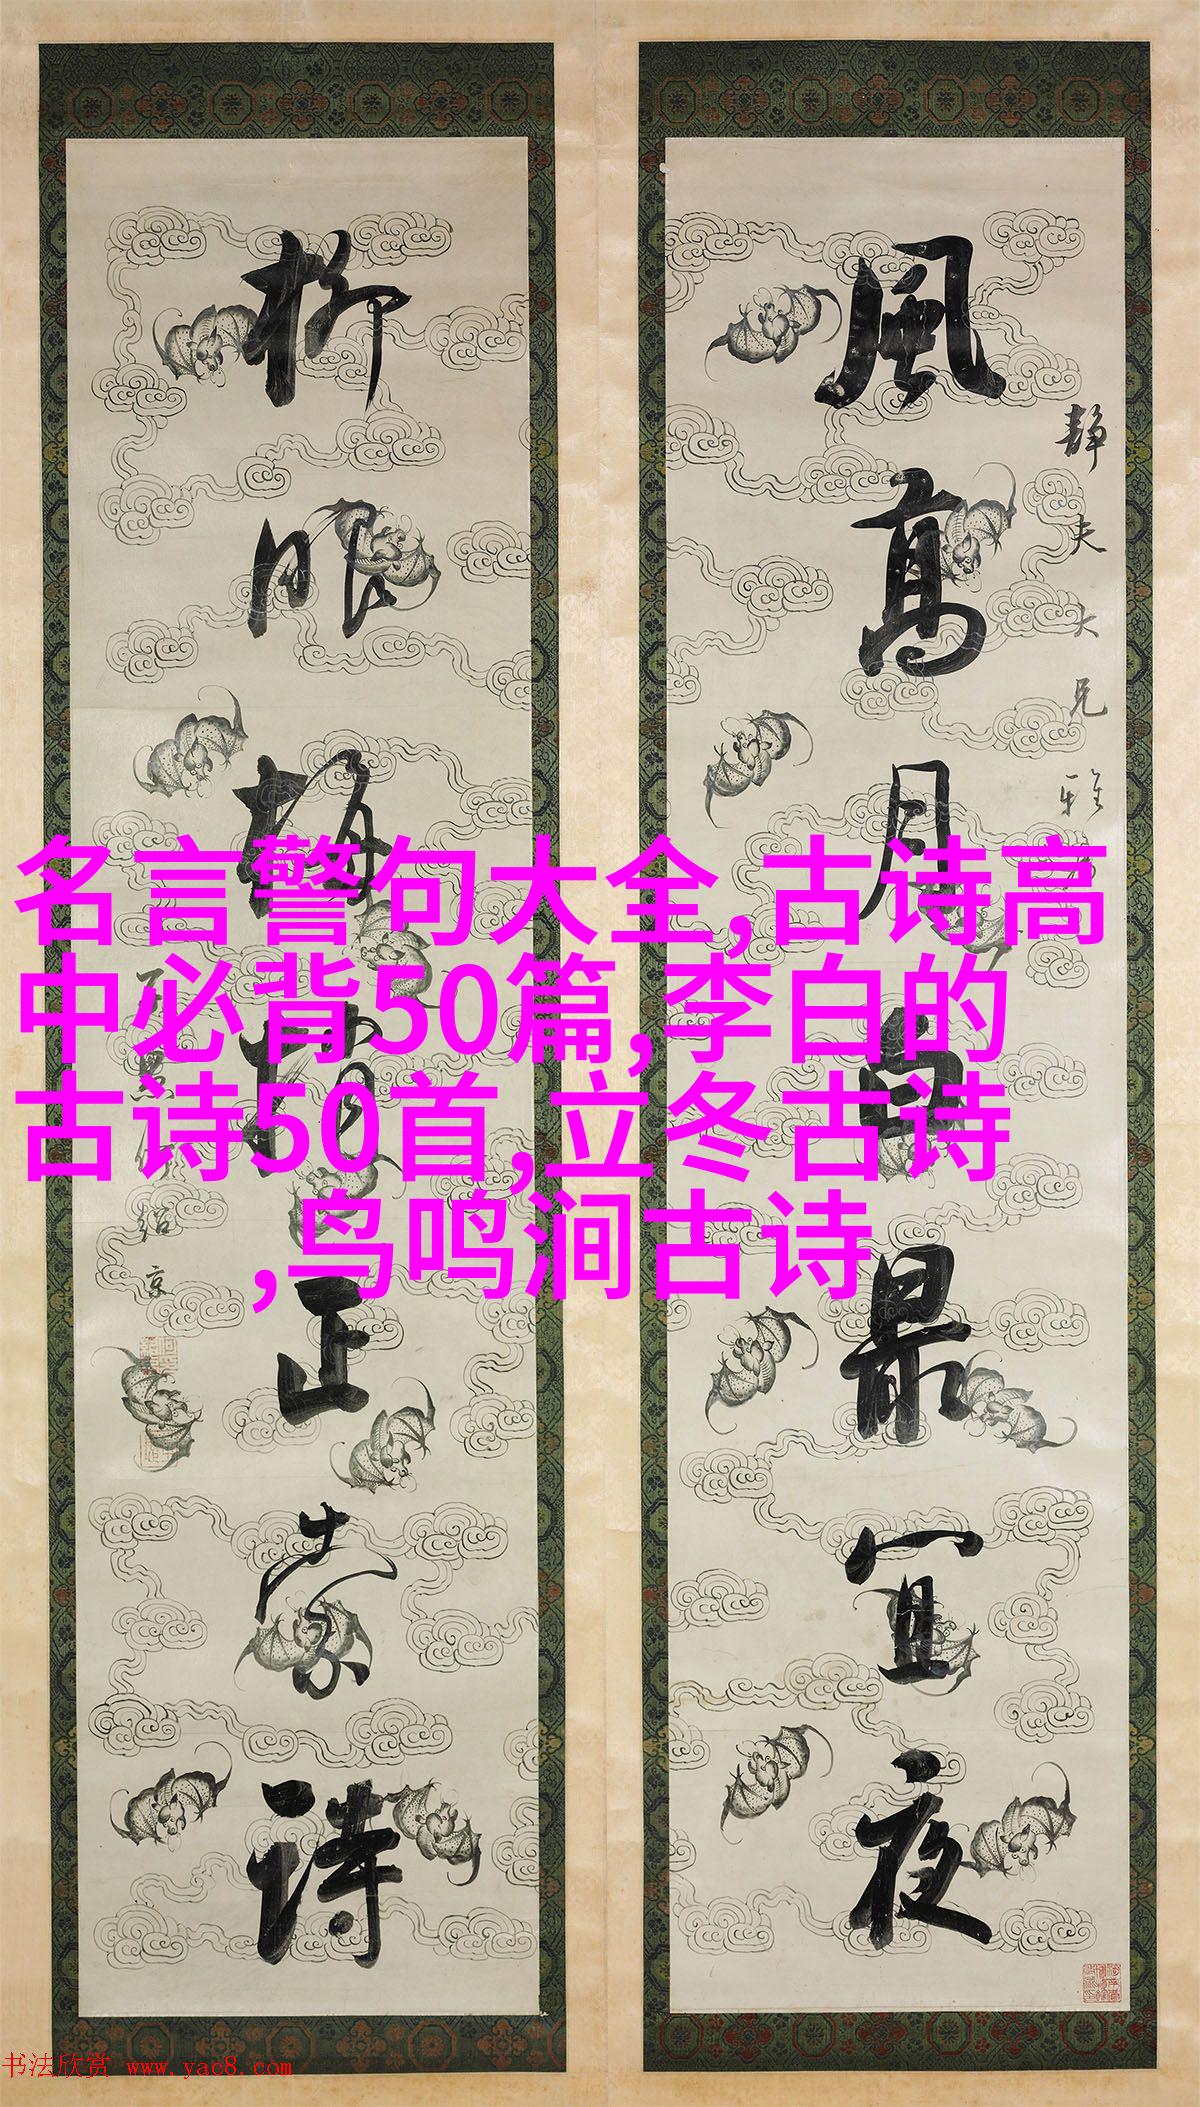 風高月白最宜夜
靜夫大兄雅
柳眼梅情正索詩
紹京
名言警句大全,古诗高
中必背50篇,李白的
古诗50首,立冬古诗
,鸟鸣涧古诗
书法欣赏 www.yac8.com